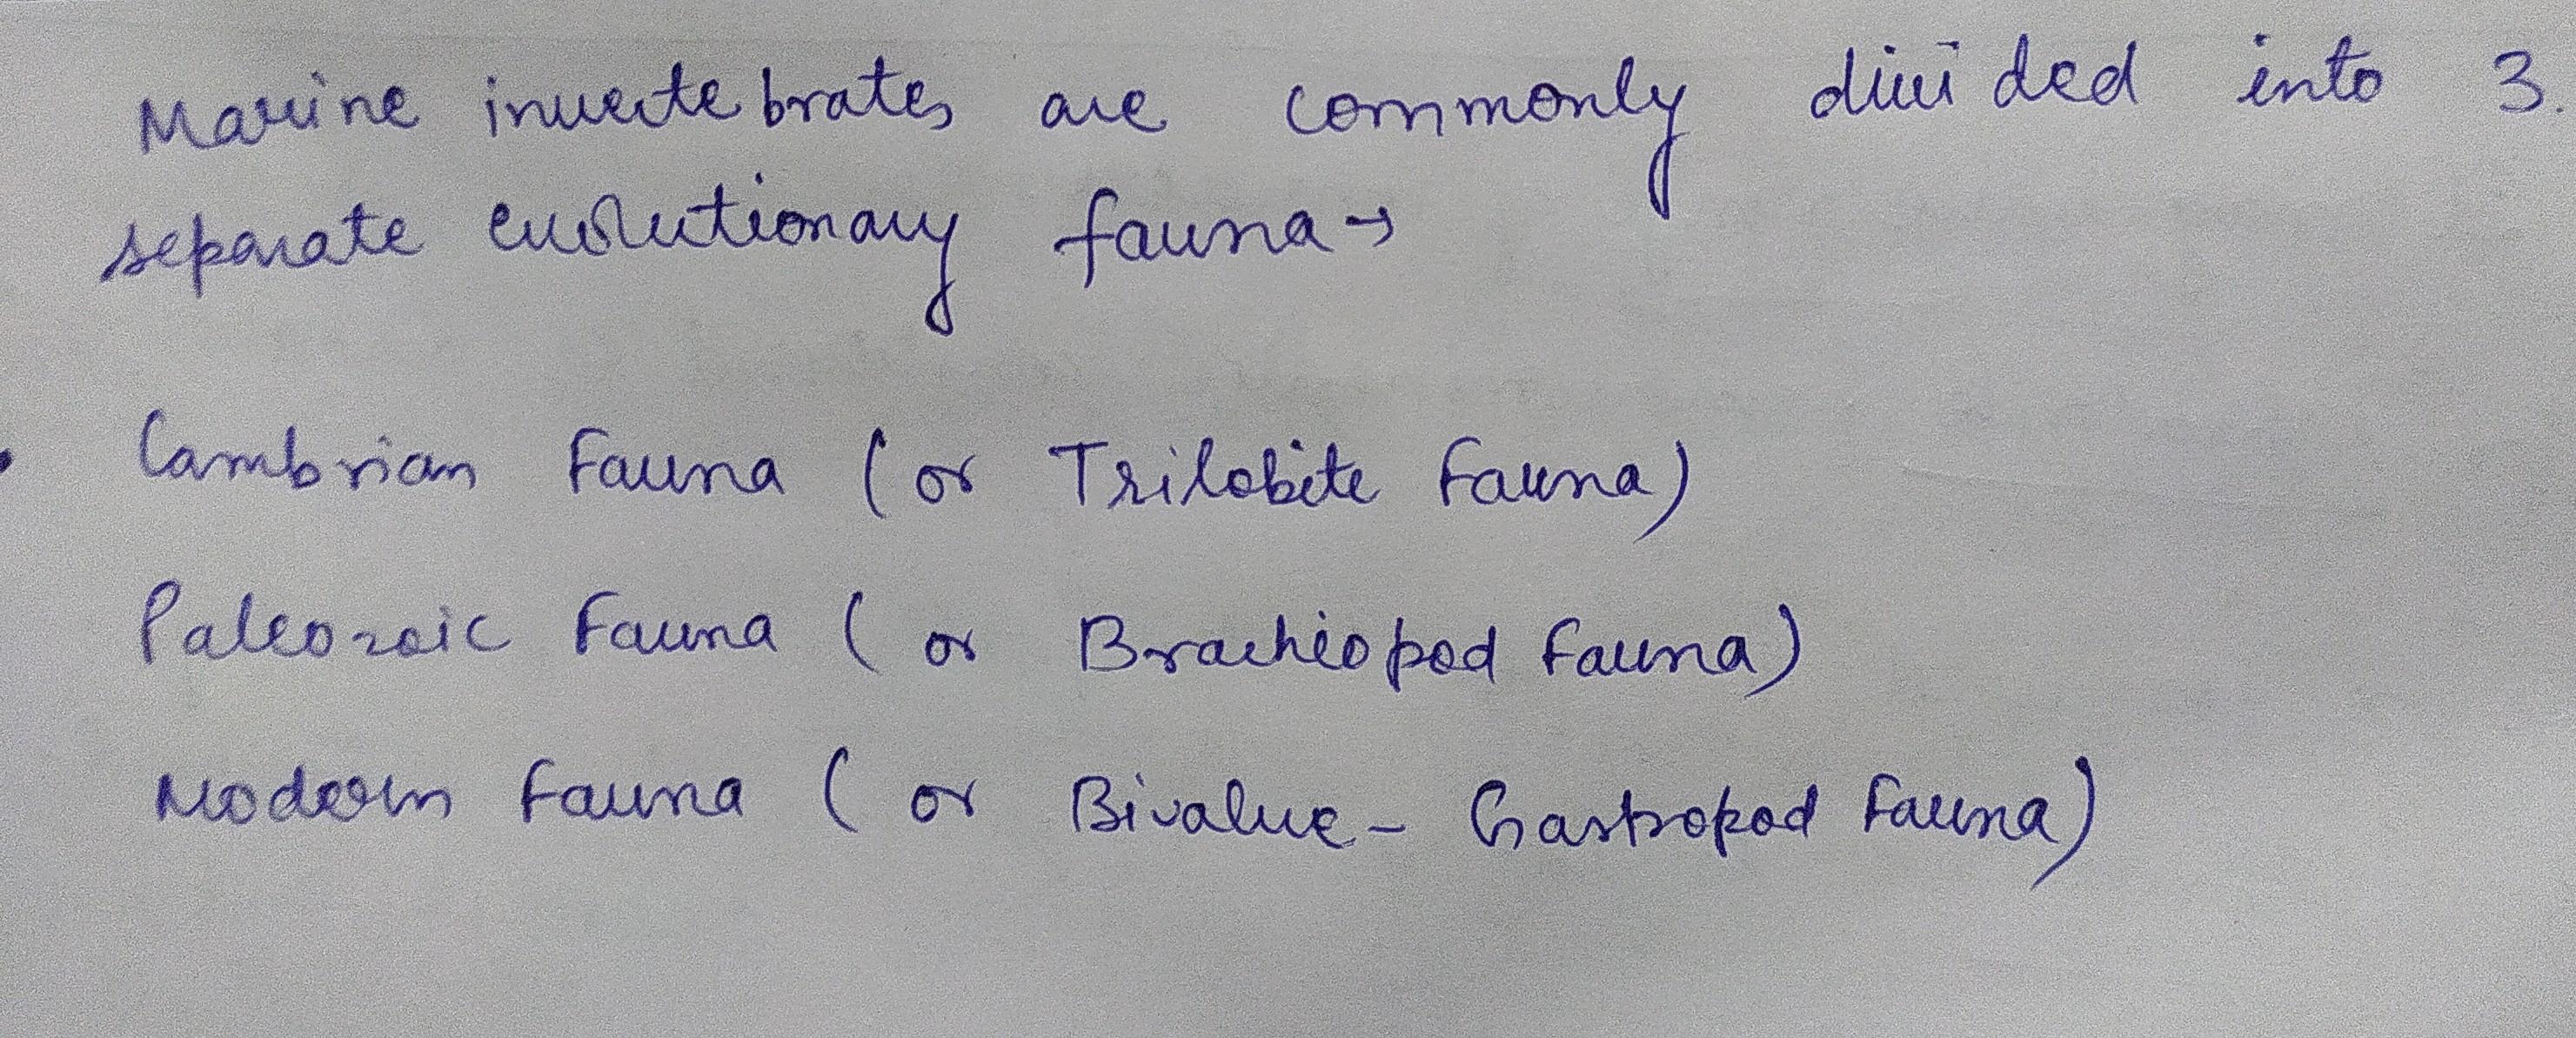 Marine invertebrates are commonly divided into 3.
separate evolutionary fauna →
• Cambrian Fauna (or Trilobite Fauna)
Paleozoic Fauna (or Brachiopod Fauna)
Modern Fauna (or Bivalve - Gastropod Fauna)